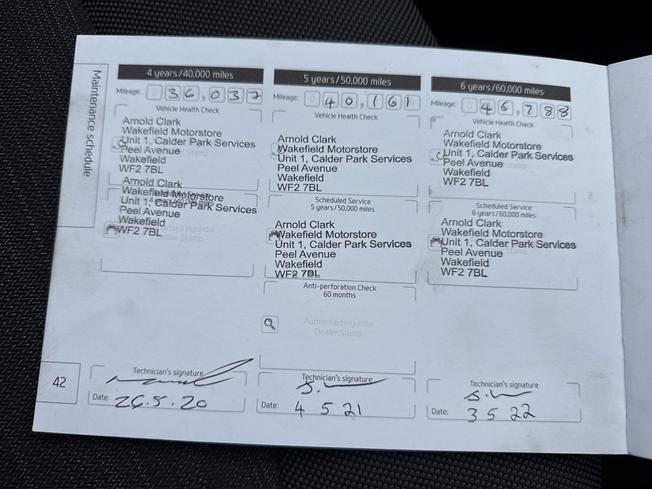 Maintenance schedule
4 years/40,000 miles
Mileage: 0 3 6 , 0 3 7
Vehicle Health Check
Arnold Clark
Wakefield Motorstore
Unit 1, Calder Park Services
Peel Avenue
Wakefield
WF2 7BL
Arnold Clark
Wakefield Motorstore
Unit 1, Calder Park Services
Peel Avenue
Wakefield
WF2 7BL
Technician's signature
Date: 26.5.20
5 years/50,000 miles
Mileage: 0 4 0 , 1 6 1
Vehicle Health Check
Arnold Clark
Wakefield Motorstore
Unit 1, Calder Park Services
Peel Avenue
Wakefield
WF2 7BL
Scheduled Service
5 years/50,000 miles
Arnold Clark
Wakefield Motorstore
Unit 1, Calder Park Services
Peel Avenue
Wakefield
WF2 7BL
Anti-perforation Check
60 months
Authorised Hyundai
Dealer Stamp
Technician's signature
Date: 4 5 21
6 years/60,000 miles
Mileage: 0 4 6 , 7 8 8
Vehicle Health Check
Arnold Clark
Wakefield Motorstore
Unit 1, Calder Park Services
Peel Avenue
Wakefield
WF2 7BL
Scheduled Service
6 years/60,000 miles
Arnold Clark
Wakefield Motorstore
Unit 1, Calder Park Services
Peel Avenue
Wakefield
WF2 7BL
Technician's signature
Date: 3 5 22
42